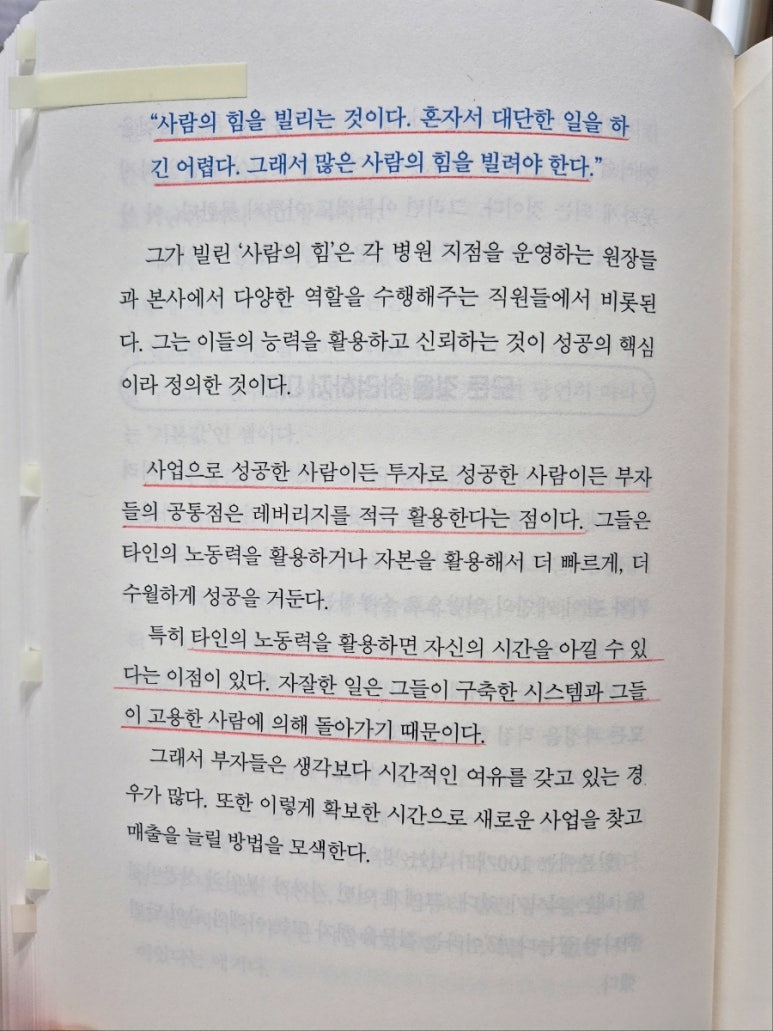 “사람의 힘을 빌리는 것이다. 혼자서 대단한 일을 하
긴 어렵다. 그래서 많은 사람의 힘을 빌려야 한다.”
그가 빌린 ‘사람의 힘’은 각 병원 지점을 운영하는 원장들
과 본사에서 다양한 역할을 수행해주는 직원들에서 비롯된
다. 그는 이들의 능력을 활용하고 신뢰하는 것이 성공의 핵심
이라 정의한 것이다.
사업으로 성공한 사람이든 투자로 성공한 사람이든 부자
들의 공통점은 레버리지를 적극 활용한다는 점이다. 그들은
타인의 노동력을 활용하거나 자본을 활용해서 더 빠르게, 더
수월하게 성공을 거둔다.
특히 타인의 노동력을 활용하면 자신의 시간을 아낄 수 있
다는 이점이 있다. 자잘한 일은 그들이 구축한 시스템과 그들
이 고용한 사람에 의해 돌아가기 때문이다.
그래서 부자들은 생각보다 시간적인 여유를 갖고 있는 경
우가 많다. 또한 이렇게 확보한 시간으로 새로운 사업을 찾고
매출을 늘릴 방법을 모색한다.